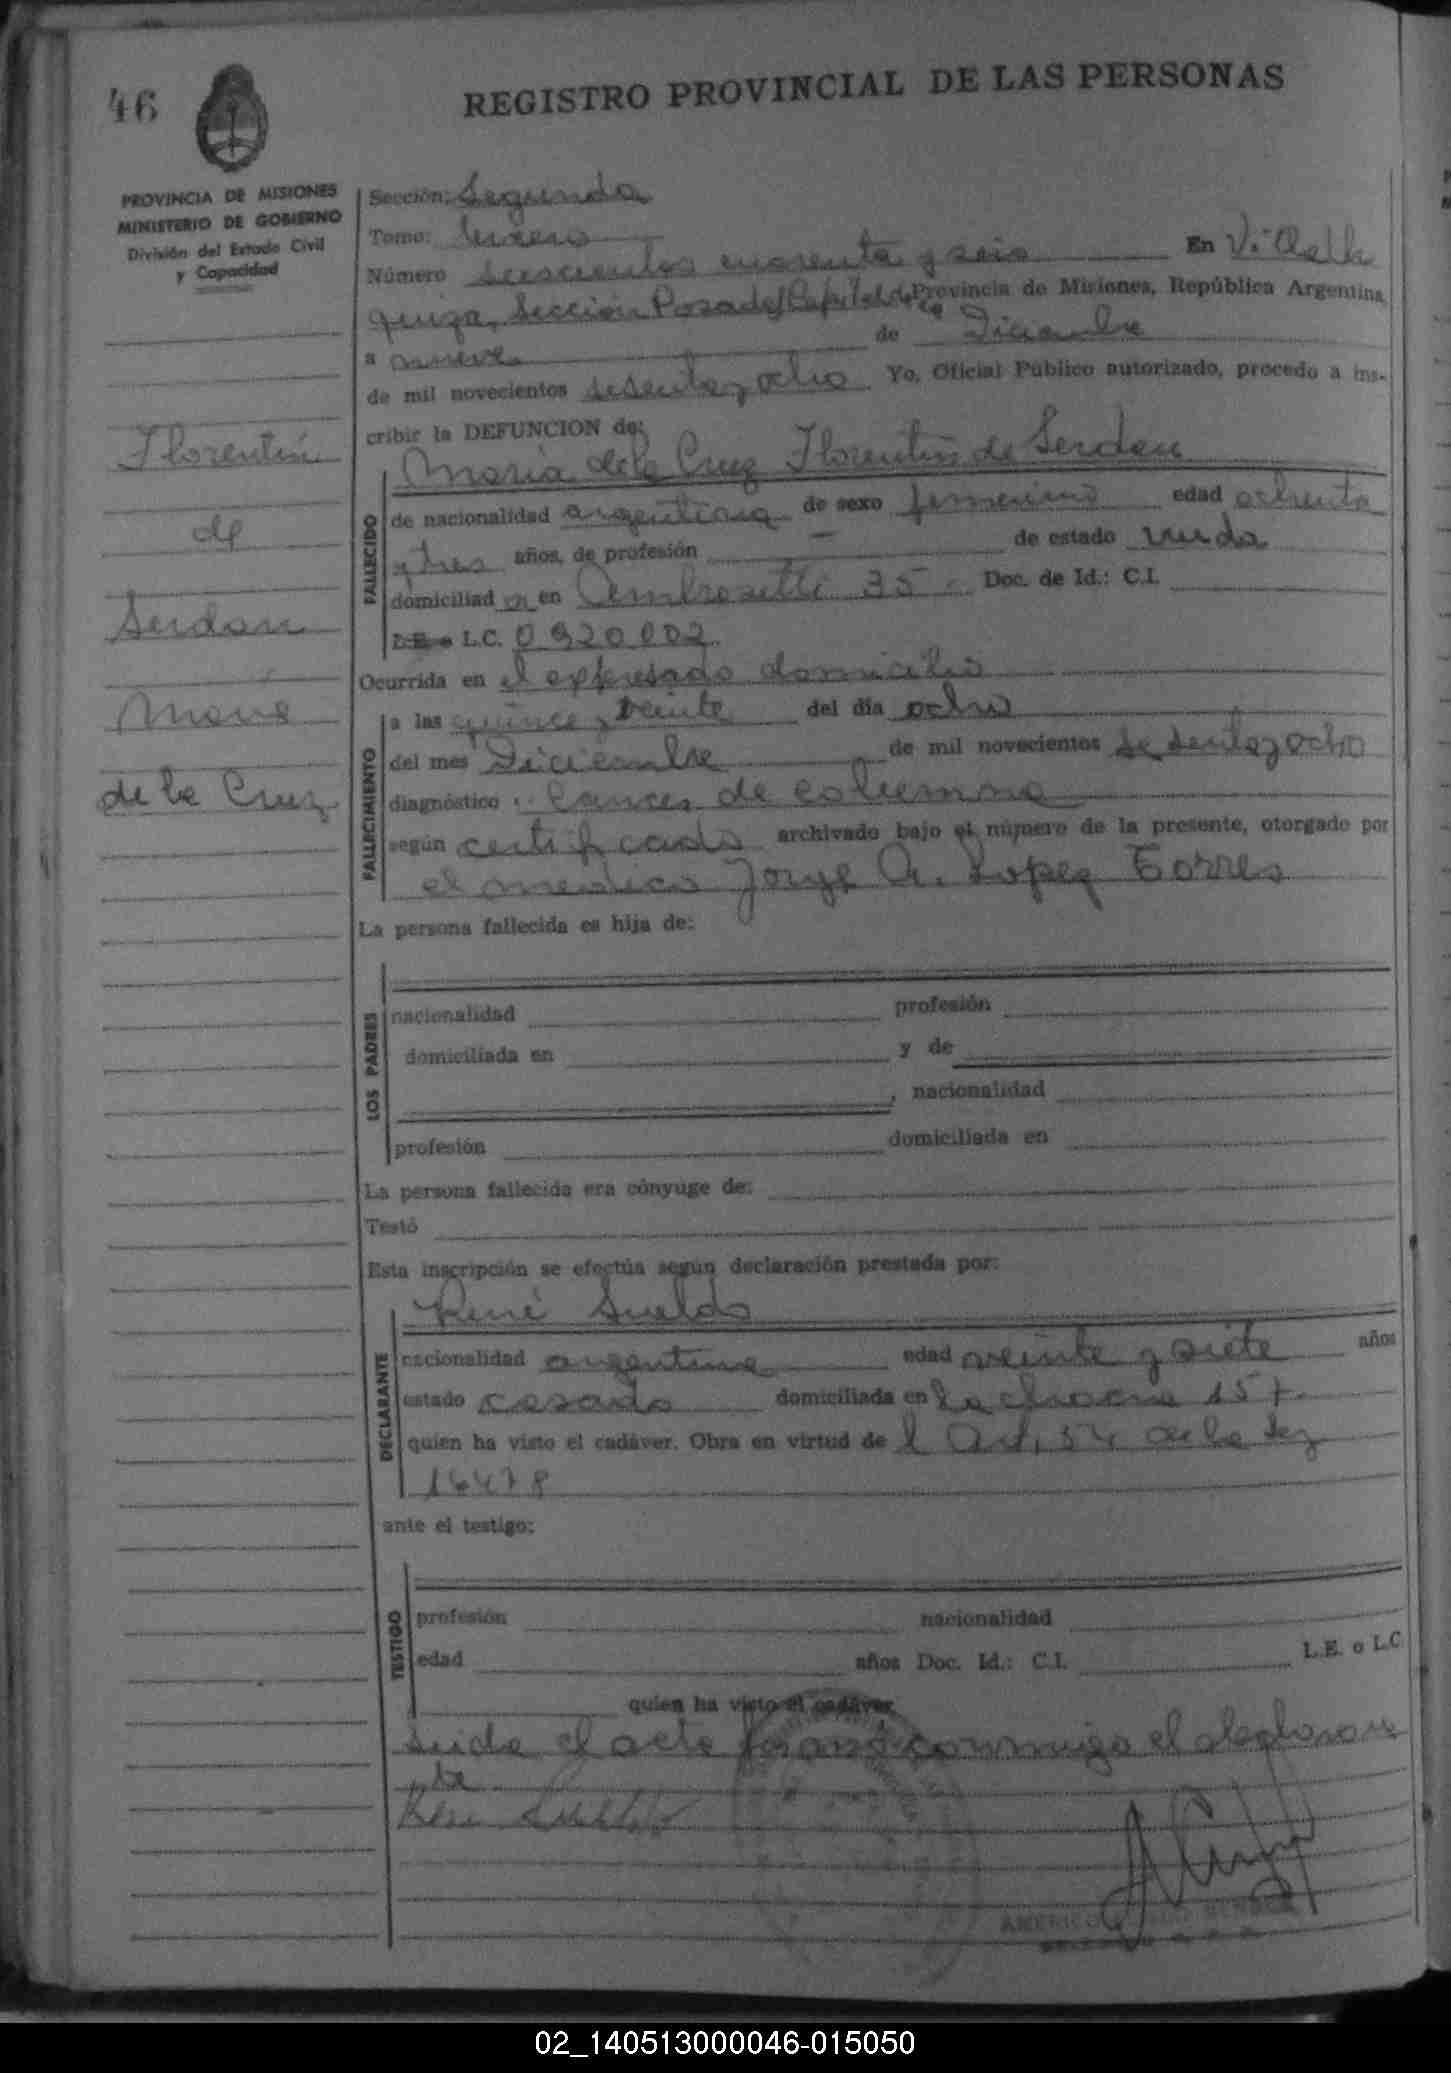 46
REGISTRO PROVINCIAL DE LAS PERSONAS
PROVINCIA DE MISIONES
MINISTERIO DE GOBIERNO
División del Estado Civil
y Capacidad
Sección: Segunda
Tomo: Tercero
Número seiscientos cuarenta y seis En Villa
Sección Posadas Capital de la Provincia de Misiones, República Argentina,
a nueve de Diciembre
de mil novecientos sesenta y ocho Yo, Oficial Público autorizado, procedo a ins-
cribir la DEFUNCION de:
Maria de la Cruz Florentin de Serdan
Florentin
de
Serdan
Maria
de la Cruz
FALLECIDO
de nacionalidad argentina de sexo femenino edad ochenta
y tres años, de profesión — de estado viuda
domiciliad a en Ambrosetti 35 Doc. de Id.: C.I.
L.E. o L.C. 0920002
Ocurrida en el expresado domicilio
FALLECIMIENTO
a las quince y treinta del día ocho
del mes Diciembre de mil novecientos sesenta y ocho
diagnóstico: Cancer de columna
según certificado archivado bajo el número de la presente, otorgado por
el medico Jorge A. Lopez Torres
La persona fallecida es hija de:
LOS PADRES
nacionalidad profesión
domiciliada en y de
, nacionalidad
profesión domiciliada en
La persona fallecida era cónyuge de:
Testó
Esta inscripción se efectúa según declaración prestada por:
René Sueldo
DECLARANTE
nacionalidad argentina edad veinte y siete años
estado casado domiciliada en 157
quien ha visto el cadáver. Obra en virtud de l Art. 54 de la Ley
16478
ante el testigo:
TESTIGO
profesión nacionalidad
edad años Doc. Id.: C.I. L.E. o L.C.
quien ha visto el cadáver
Leida el acta firmó conmigo el declaran
te
René Sueldo
AMERICO
02_140513000046-015050